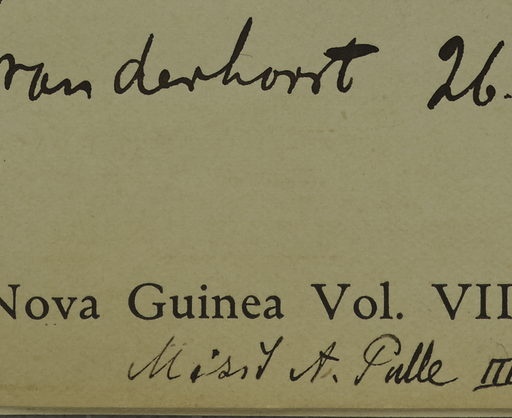 van derhorst 26.
Nova Guinea Vol. VII
Misit A. Pulle III